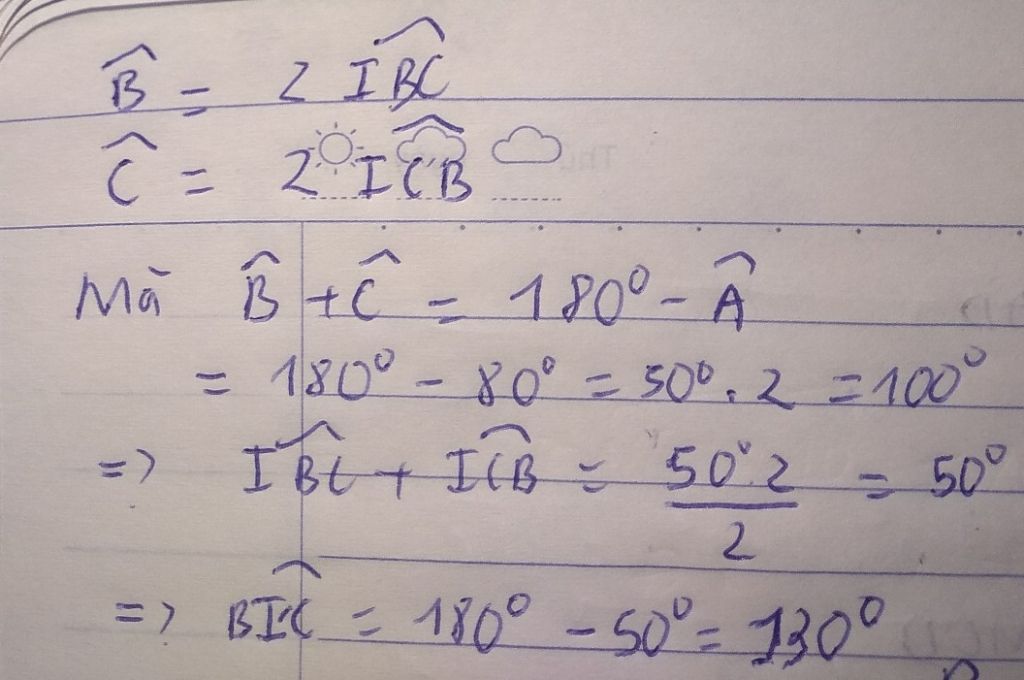 B̂ = 2 IB̂C
Ĉ = 2 IĈB
Mà B̂ + Ĉ = 180° - Â
= 180° - 80° = 50°. 2 = 100°
=> IB̂C + IĈB = 50°.2 / 2 = 50°
=> BÎC = 180° - 50° = 130°